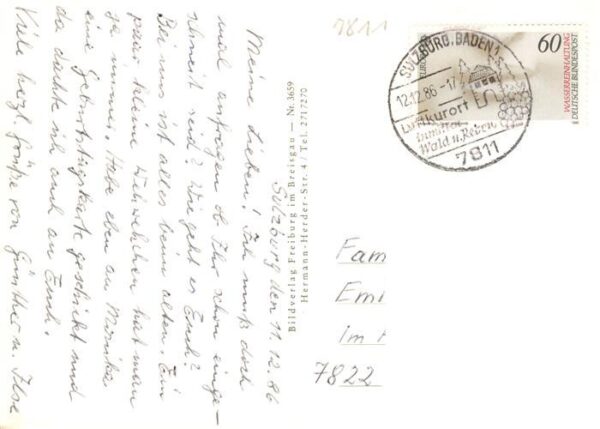 Sulzburg den 11.12.86
Meine Lieben! Ich muß doch
mal anfragen ob Ihr schon einge-
schneit seid? Wie geht es Euch?
Bei uns ist alles beim alten. Ein
paar kleine Wehwehchen hat man
ja immer. Habe eben an Monika
eine Geburtstagskarte geschickt und
da dachte ich auch an Euch.
Viele herzl. Grüße von Günther u. Ilse
Bildverlag Freiburg im Breisgau — Nr. 3659
Hermann-Herder-Str. 4 / Tel. 2717270
7811
SULZBURG, BADEN 1
12.12.86-17
Luftkurort
inmitten
Wald u. Reben
7811
EUROPA
60
WASSERREINHALTUNG
DEUTSCHE BUNDESPOST
Fam
Emi
Im
7822